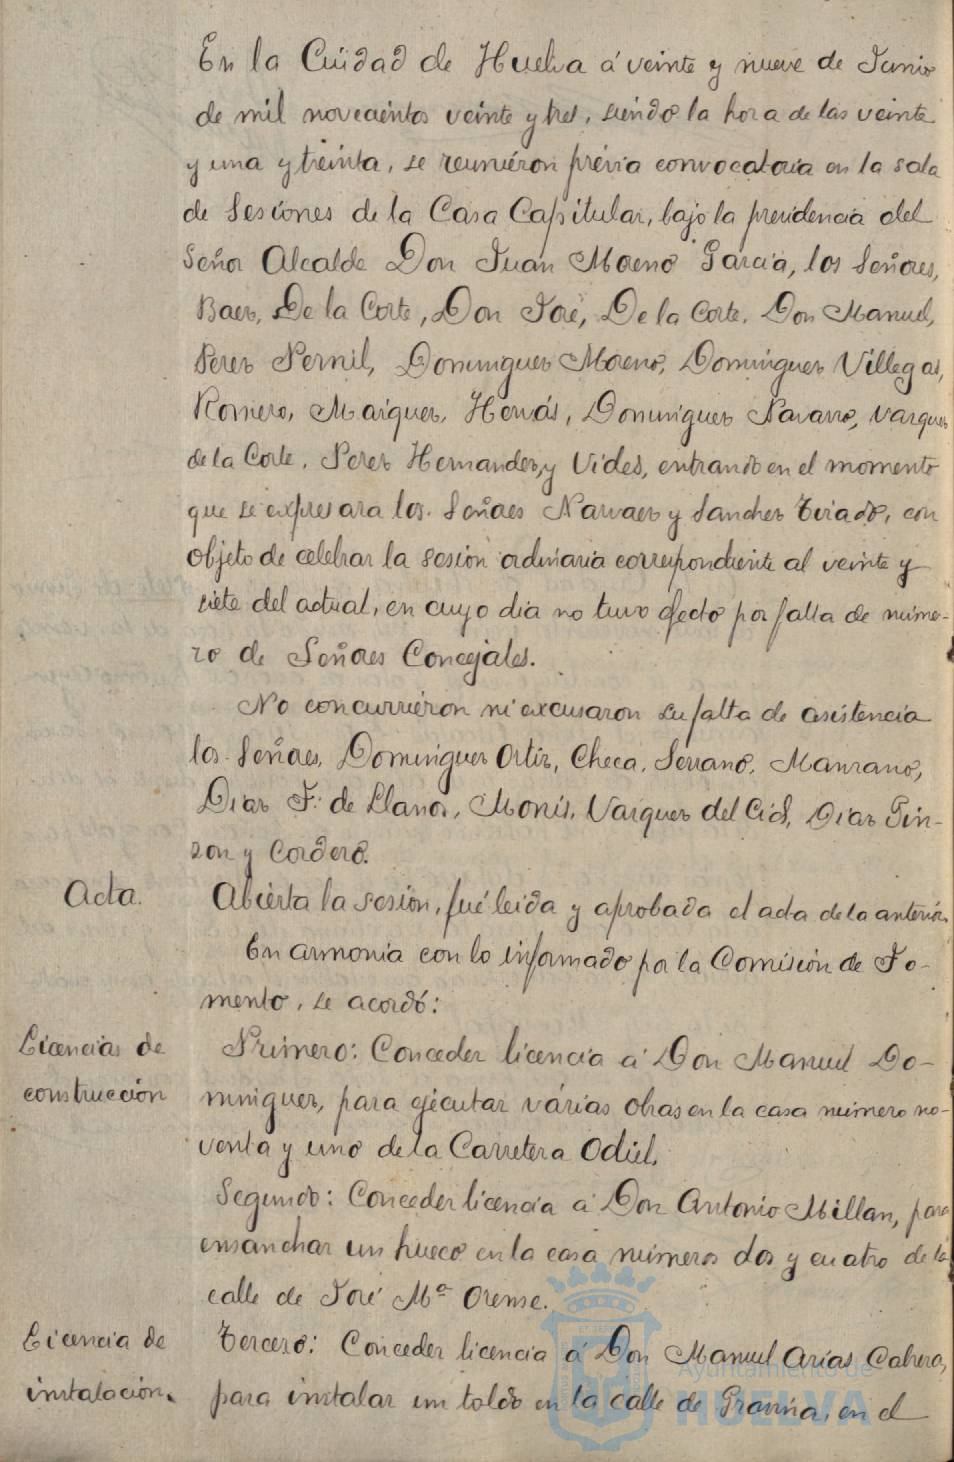 En la Ciudad de Huelva á veinte y nueve de Junio
de mil novecientos veinte y tres, siendo la hora de las veinte
y una y treinta, se reunieron prévia convocatoria en la sala
de Sesiones de la Casa Capitular, bajo la presidencia del
Señor Alcalde Don Juan Moreno García, los Señores,
Baez, De la Corte, Don José, De la Corte, Don Manuel,
Perez Pernil, Dominguez Moreno, Dominguez Villegas,
Romero, Maiquez, Hervás, Dominguez Navarro, Vazquez
de la Corte, Perez Hernandez, y Vides, entrando en el momento
que se expresara los Señores Narvaez y Sanchez Tirado, con
objeto de celebrar la sesión ordinaria correspondiente al veinte y
siete del actual, en cuyo dia no tuvo efecto por falta de núme-
ro de Señores Concejales.
No concurrieron ni excusaron su falta de asistencia
los Señores, Dominguez Ortiz, Checa, Serrano, Manzano,
Diaz F. de Llanos, Monís, Vazquez del Cid, Diaz Pin-
zon y Cordero.
Acta. Abierta la sesión, fué leida y aprobada el acta de la anterior.
En armonia con lo informado por la Comisión de Fo-
mento, se acordó:
Licencias de Primero: Conceder licencia á Don Manuel Do-
construcción minguez, para ejecutar várias obras en la casa número no-
venta y uno de la Carretera Odiel.
Segundo: Conceder licencia á Don Antonio Millan, para
ensanchar un hueco en la casa números dos y cuatro de la
calle de José Mª Orense.
Licencia de Tercero: Conceder licencia á Don Manuel Arias Cabrera,
instalación. para instalar un toldo en la calle de Gravina, en el
Ayuntamiento de
HUELVA